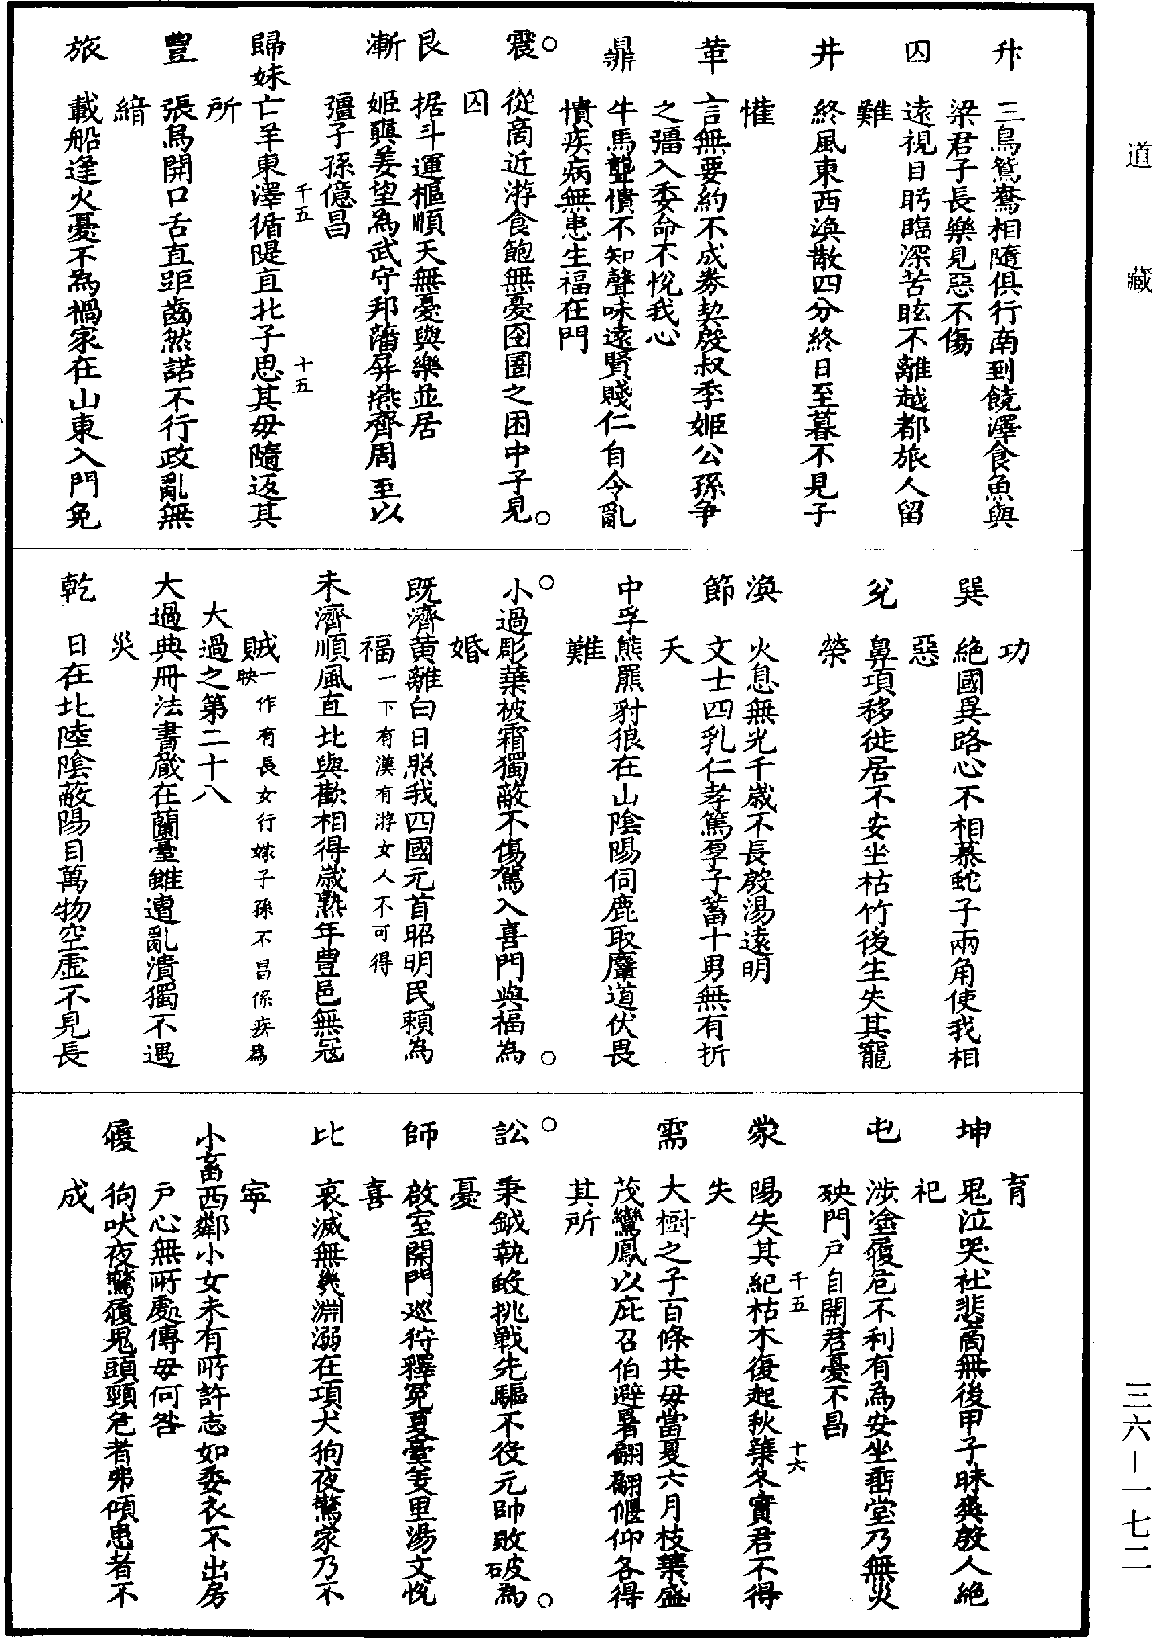 道藏
升　三鳥鴛鴦相隨俱行南到饒澤食魚與
梁君子長樂見惡不傷
囚　遠視目盻臨深苦眩不離越都旅人留
難
井　終風東西渙散四分終日至暮不見子
懽
革　言無要約不成券契殷叔季姬公孫争
之彊入委命不悅我心
鼎　牛馬聾憒不知聲味遠賢賤仁自令亂
憒疾病無患生福在門
○震　從商近游食飽無憂囹圄之困中子見○
囚
艮　据斗運樞順天無憂與樂並居
漸　姬奭姜望為武守邦藩屏燕齊周至以
彊子孫億昌
千五　十五
歸妹亡羊東澤循隄直北子思其毋隨返其
所
豐　張烏開口舌直距齒然諾不行政亂無
緒
旅　載船逢火憂不為禍家在山東入門免
功
巽　絶國異路心不相慕蛇子兩角使我相
惡
兊　鼻項移徙居不安坐枯竹後生失其寵
榮
渙　火息無光千歲不長殷湯遠明
節　文士四乳仁孝篤厚子蓄十男無有折
夭
中孚熊羆豺狼在山陰陽伺鹿取麞道伏畏
難
○小過彫葉被霜獨敵不傷駕入喜門與福為○
婚
既濟黄離白日照我四國元首昭明民賴為
福一下有漢有游女人不可得
未濟順風直北與歡相得歲熟年豊邑無冠
賊一作有長女行嫁子孫不昌係疾為
映
大過之第二十八
大過典冊法書藏在蘭臺雖遭亂潰獨不遇
災
乾　日在北陸陰蔽陽目萬物空虛不見長
育
坤　鬼泣哭社悲商無後甲子昧爽殷人絶
祀
屯　涉塗履危不利有為安坐垂堂乃無災
殃門戸自開君憂不昌
千五　十六
蒙　陽失其紀枯木復起秋葉冬實君不得
失
需　大樹之子百條共毋當夏六月枝葉盛
茂鸞鳳以庇召伯避暑翩翩偃仰各得
其所
○訟　秉鉞執殳挑戰先驅不役元帥敗破為○
憂
師　啟室開門巡狩釋寃夏臺羑里湯文悅
喜
比　哀滅無幾淵溺在項犬狗夜驚家乃不
寧
小畜西鄰小女未有所許志如委衣不出房
戸心無所處傳毋何咎
履　狗吠夜驚履鬼頭頸危者弗傾患者不
成
三六－一七二